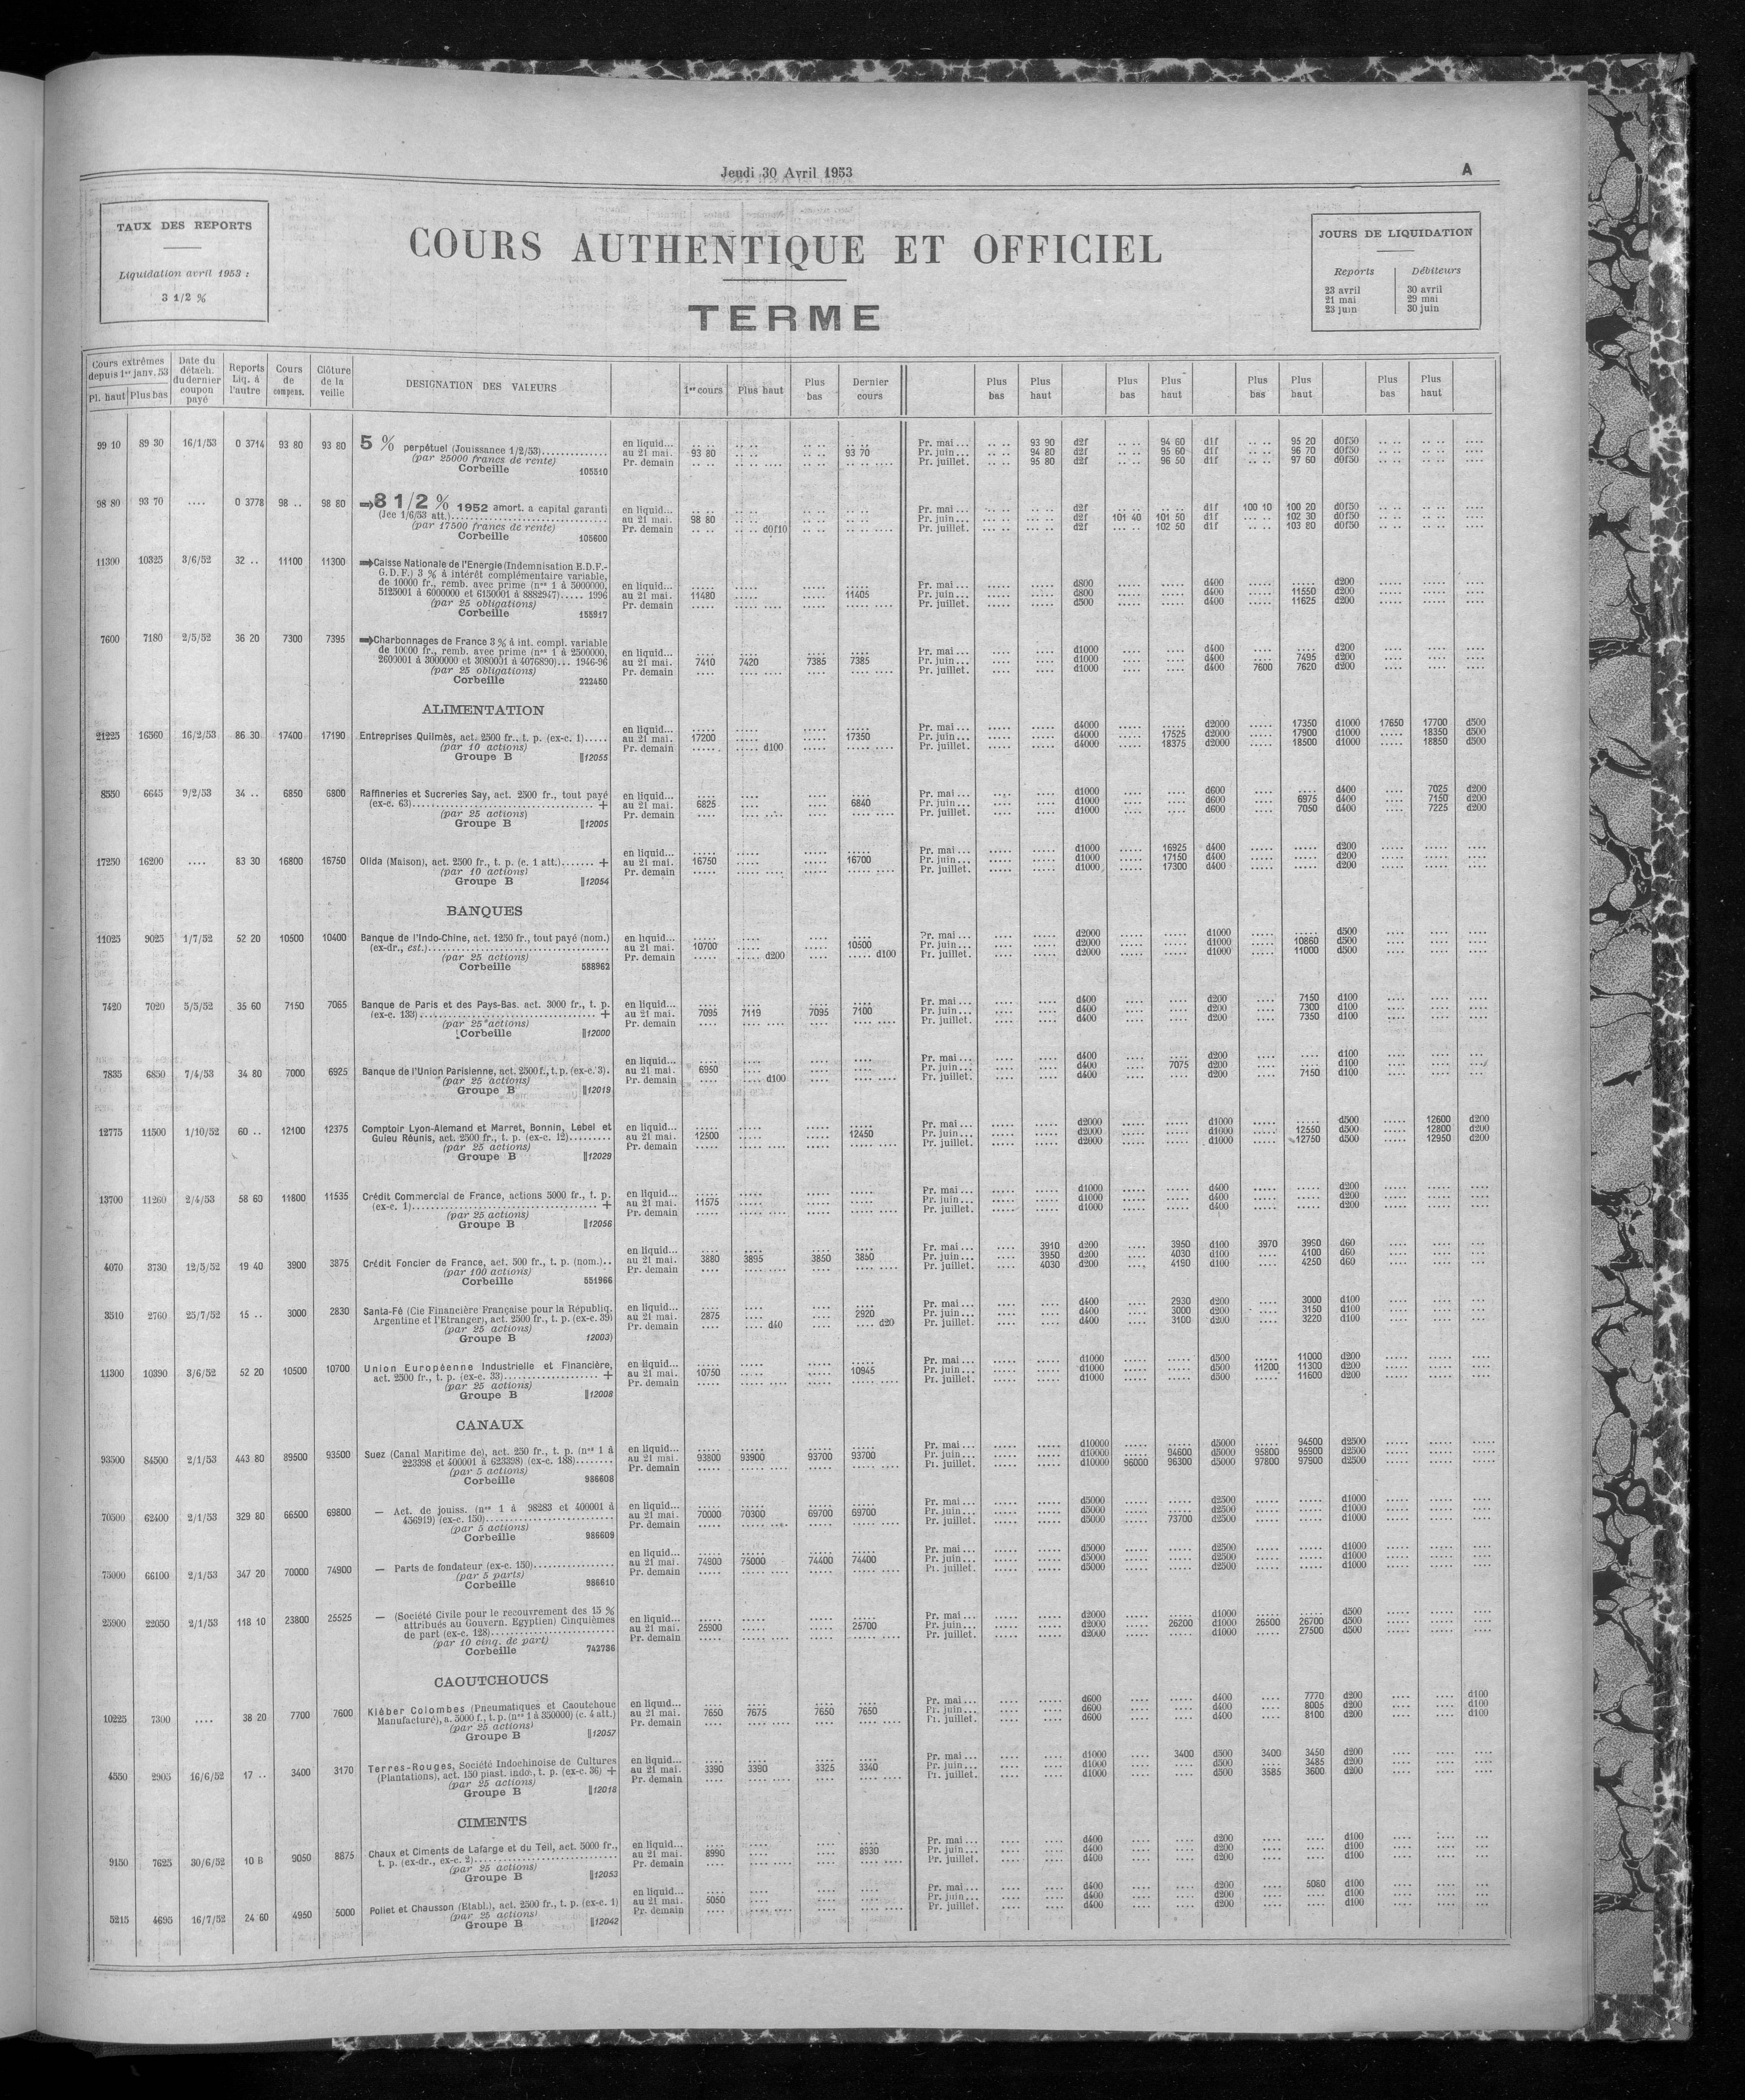 Jeudi 30 Avril 1953
A
TAUX DES REPORTS
Liquidation avril 1953 :
3 1/2 %
COURS AUTHENTIQUE ET OFFICIEL
TERME
JOURS DE LIQUIDATION
Reports Débiteurs
23 avril 30 avril
21 mai 29 mai
23 juin 30 juin
Cours extrêmes depuis 1er janv. 53 Pl. haut Plus bas
Date du détach. du dernier coupon payé
Reports Liq. à l'autre
Cours de compens.
Clôture de la veille
DESIGNATION DES VALEURS
1er cours Plus haut Plus bas Dernier cours
Plus bas Plus haut Plus bas Plus haut Plus bas Plus haut Plus bas Plus haut
99 10 89 30 16/1/53 0 3714 93 80 93 80 5 % perpétuel (Jouissance 1/2/53)
(par 25000 francs de rente)
Corbeille 105510
en liquid... Pr. mai... 93 90 d2f 94 60 d1f 95 20 d0f50
au 21 mai. 93 80 93 70 Pr. juin... 94 80 d2f 95 60 d1f 96 70 d0f50
Pr. demain Pr. juillet. 95 80 d2f 96 50 d1f 97 60 d0f50
98 80 93 70 .... 0 3778 98 .. 98 80 ➡8 1/2 % 1952 amort. a capital garanti
(Jce 1/6/53 att.)
(par 17500 francs de rente)
Corbeille 105600
en liquid... Pr. mai... d2f d1f 100 10 100 20 d0f50
au 21 mai. 98 80 Pr. juin... d2f 101 40 101 50 d1f 102 30 d0f50
Pr. demain d0f10 Pr. juillet. d2f 102 50 d1f 103 80 d0f50
11300 10325 3/6/52 32 .. 11100 11300 ➡Caisse Nationale de l'Energie (Indemnisation E.D.F.-
G.D.F.) 3 % à intérêt complémentaire variable,
de 10000 fr., remb. avec prime (nos 1 à 5000000,
5125001 à 6000000 et 6150001 à 8882947)..... 1996
(par 25 obligations)
Corbeille 155917
en liquid... Pr. mai... d800 d400 d200
au 21 mai. 11480 11405 Pr. juin... d800 d400 11550 d200
Pr. demain Pr. juillet. d500 d400 11625 d200
7600 7180 2/5/52 36 20 7300 7395 ➡Charbonnages de France 3 % à int. compl. variable
de 10000 fr., remb. avec prime (nos 1 à 2500000,
2609001 à 3000000 et 3080001 à 4076890)... 1946-96
(par 25 obligations)
Corbeille 222450
en liquid... Pr. mai... d1000 d400 d200
au 21 mai. 7410 7420 7385 7385 Pr. juin... d1000 d400 7495 d200
Pr. demain Pr. juillet. d1000 d400 7600 7620 d200
ALIMENTATION
21225 16560 16/2/53 86 30 17400 17190 Entreprises Quilmès, act. 2500 fr., t. p. (ex-c. 1).....
(par 10 actions)
Groupe B ‖12055
en liquid... Pr. mai... d4000 d2000 17350 d1000 17650 17700 d500
au 21 mai. 17200 17350 Pr. juin... d4000 17525 d2000 17900 d1000 18350 d500
Pr. demain d100 Pr. juillet. d4000 18375 d2000 18500 d1000 18850 d500
8550 6645 9/2/53 34 .. 6850 6800 Raffineries et Sucreries Say, act. 2500 fr., tout payé
(ex-c. 63) +
(par 25 actions)
Groupe B ‖12005
en liquid... Pr. mai... d1000 d600 d400 7025 d200
au 21 mai. 6825 6840 Pr. juin... d1000 d600 6975 d400 7150 d200
Pr. demain Pr. juillet. d1000 d600 7050 d400 7225 d200
17250 16200 .... 83 30 16800 16750 Olida (Maison), act. 2500 fr., t. p. (c. 1 att.)....... +
(par 10 actions)
Groupe B ‖12054
en liquid... Pr. mai... d1000 16925 d400 d200
au 21 mai. 16750 16700 Pr. juin... d1000 17150 d400 d200
Pr. demain Pr. juillet. d1000 17300 d400 d200
BANQUES
11025 9025 1/7/52 52 20 10500 10400 Banque de l'Indo-Chine, act. 1250 fr., tout payé (nom.)
(ex-dr., est.)
(par 25 actions)
Corbeille 588962
en liquid... Pr. mai... d2000 d1000 d500
au 21 mai. 10700 10500 Pr. juin... d2000 d1000 10860 d500
Pr. demain d200 d100 Pr. juillet. d2000 d1000 11000 d500
7420 7020 5/5/52 35 60 7150 7065 Banque de Paris et des Pays-Bas. act. 3000 fr., t. p.
(ex-c. 133) +
(par 25 actions)
Corbeille ‖12000
en liquid... Pr. mai... d400 d200 7150 d100
au 21 mai. 7095 7119 7095 7100 Pr. juin... d400 d200 7300 d100
Pr. demain Pr. juillet. d400 d200 7350 d100
7835 6850 7/4/53 34 80 7000 6925 Banque de l'Union Parisienne, act. 2500 f., t. p. (ex-c. 3).
(par 25 actions)
Groupe B ‖12019
en liquid... Pr. mai... d400 d200 d100
au 21 mai. 6950 Pr. juin... d400 7075 d200 d100
Pr. demain d100 Pr. juillet. d400 d200 7150 d100
12775 11500 1/10/52 60 .. 12100 12375 Comptoir Lyon-Alemand et Marret, Bonnin, Lebel et
Guieu Réunis, act. 2500 fr., t. p. (ex-c. 12)........
(par 25 actions)
Groupe B ‖12029
en liquid... Pr. mai... d2000 d1000 d500 12600 d200
au 21 mai. 12500 12450 Pr. juin... d2000 d1000 12550 d500 12800 d200
Pr. demain Pr. juillet. d2000 d1000 12750 d500 12950 d200
13700 11260 2/4/53 58 60 11800 11535 Crédit Commercial de France, actions 5000 fr., t. p.
(ex-c. 1) +
(par 25 actions)
Groupe B ‖12056
en liquid... Pr. mai... d1000 d400 d200
au 21 mai. 11575 Pr. juin... d1000 d400 d200
Pr. demain Pr. juillet. d1000 d400 d200
4070 3730 12/5/52 19 40 3900 3875 Crédit Foncier de France, act. 500 fr., t. p. (nom.)..
(par 100 actions)
Corbeille 551966
en liquid... Pr. mai... 3910 d200 3950 d100 3970 3990 d60
au 21 mai. 3880 3895 3850 3850 Pr. juin... 3950 d200 4030 d100 4100 d60
Pr. demain Pr. juillet. 4030 d200 4190 d100 4250 d60
3510 2760 25/7/52 15 .. 3000 2830 Santa-Fé (Cie Financière Française pour la Républiq.
Argentine et l'Etranger), act. 2500 fr., t. p. (ex-c. 39)
(par 25 actions)
Groupe B 12003)
en liquid... Pr. mai... d400 2930 d200 3000 d100
au 21 mai. 2875 2920 Pr. juin... d400 3000 d200 3150 d100
Pr. demain d40 d20 Pr. juillet. d400 3100 d200 3220 d100
11300 10390 3/6/52 52 20 10500 10700 Union Européenne Industrielle et Financière,
act. 2500 fr., t. p. (ex-c. 33) +
(par 25 actions)
Groupe B ‖12008
en liquid... Pr. mai... d1000 d500 11000 d200
au 21 mai. 10750 10945 Pr. juin... d1000 d500 11200 11300 d200
Pr. demain Pr. juillet. d1000 d500 11600 d200
CANAUX
93500 84500 2/1/53 443 80 89500 93500 Suez (Canal Maritime de), act. 250 fr., t. p. (nos 1 à
223398 et 400001 à 623398) (ex-c. 188)........
(par 5 actions)
Corbeille 986608
en liquid... Pr. mai... d10000 d5000 94500 d2500
au 21 mai. 93800 93900 93700 93700 Pr. juin... d10000 94600 d5000 95800 95900 d2500
Pr. demain Pr. juillet. d10000 96000 96300 d5000 97800 97900 d2500
70500 62400 2/1/53 329 80 66500 69800 — Act. de jouiss. (nos 1 à 98283 et 400001 à
456919) (ex-c. 150)
(par 5 actions)
Corbeille 986609
en liquid... Pr. mai... d5000 d2500 d1000
au 21 mai. 70000 70300 69700 69700 Pr. juin... d5000 d2500 d1000
Pr. demain Pr. juillet. d5000 73700 d2500 d1000
75000 66100 2/1/53 347 20 70000 74900 — Parts de fondateur (ex-c. 150)
(par 5 parts)
Corbeille 986610
en liquid... Pr. mai... d5000 d2500 d1000
au 21 mai. 74900 75000 74400 74400 Pr. juin... d5000 d2500 d1000
Pr. demain Pr. juillet. d5000 d2500 d1000
25900 22050 2/1/53 118 10 23800 25525 — (Société Civile pour le recouvrement des 15 %
attribués au Gouvern. Egyptien) Cinquièmes
de part (ex-c. 128)
(par 10 cinq. de part)
Corbeille 742786
en liquid... Pr. mai... d2000 d1000 d500
au 21 mai. 25900 25700 Pr. juin... d2000 26200 d1000 26500 26700 d500
Pr. demain Pr. juillet. d2000 d1000 27500 d500
CAOUTCHOUCS
10225 7300 .... 38 20 7700 7600 Kléber Colombes (Pneumatiques et Caoutchouc
Manufacturé), a. 5000 f., t. p. (nos 1 à 350000) (c. 4 att.)
(par 25 actions)
Groupe B ‖12057
en liquid... Pr. mai... d600 d400 7770 d200 d100
au 21 mai. 7650 7675 7650 7650 Pr. juin... d600 d400 8005 d200 d100
Pr. demain Pr. juillet. d600 d400 8100 d200 d100
4550 2905 16/6/52 17 .. 3400 3170 Terres-Rouges, Société Indochinoise de Cultures
(Plantations), act. 150 piast. indo., t. p. (ex-c. 36) +
(par 25 actions)
Groupe B ‖12018
en liquid... Pr. mai... d1000 3400 d500 3400 3450 d200
au 21 mai. 3390 3390 3325 3340 Pr. juin... d1000 d500 3485 d200
Pr. demain Pr. juillet. d1000 d500 3585 3600 d200
CIMENTS
9150 7625 30/6/52 10 B 9050 8875 Chaux et Ciments de Lafarge et du Teil, act. 5000 fr.,
t. p. (ex-dr., ex-c. 2)
(par 25 actions)
Groupe B ‖12053
en liquid... Pr. mai... d400 d200 d100
au 21 mai. 8990 8930 Pr. juin... d400 d200 d100
Pr. demain Pr. juillet. d400 d200 d100
5215 4695 16/7/52 24 60 4950 5000 Poliet et Chausson (Etabl.), act. 2500 fr., t. p. (ex-c. 1)
(par 25 actions)
Groupe B ‖12042
en liquid... Pr. mai... d400 d200 5060 d100
au 21 mai. 5050 Pr. juin... d400 d200 d100
Pr. demain Pr. juillet. d400 d200 d100